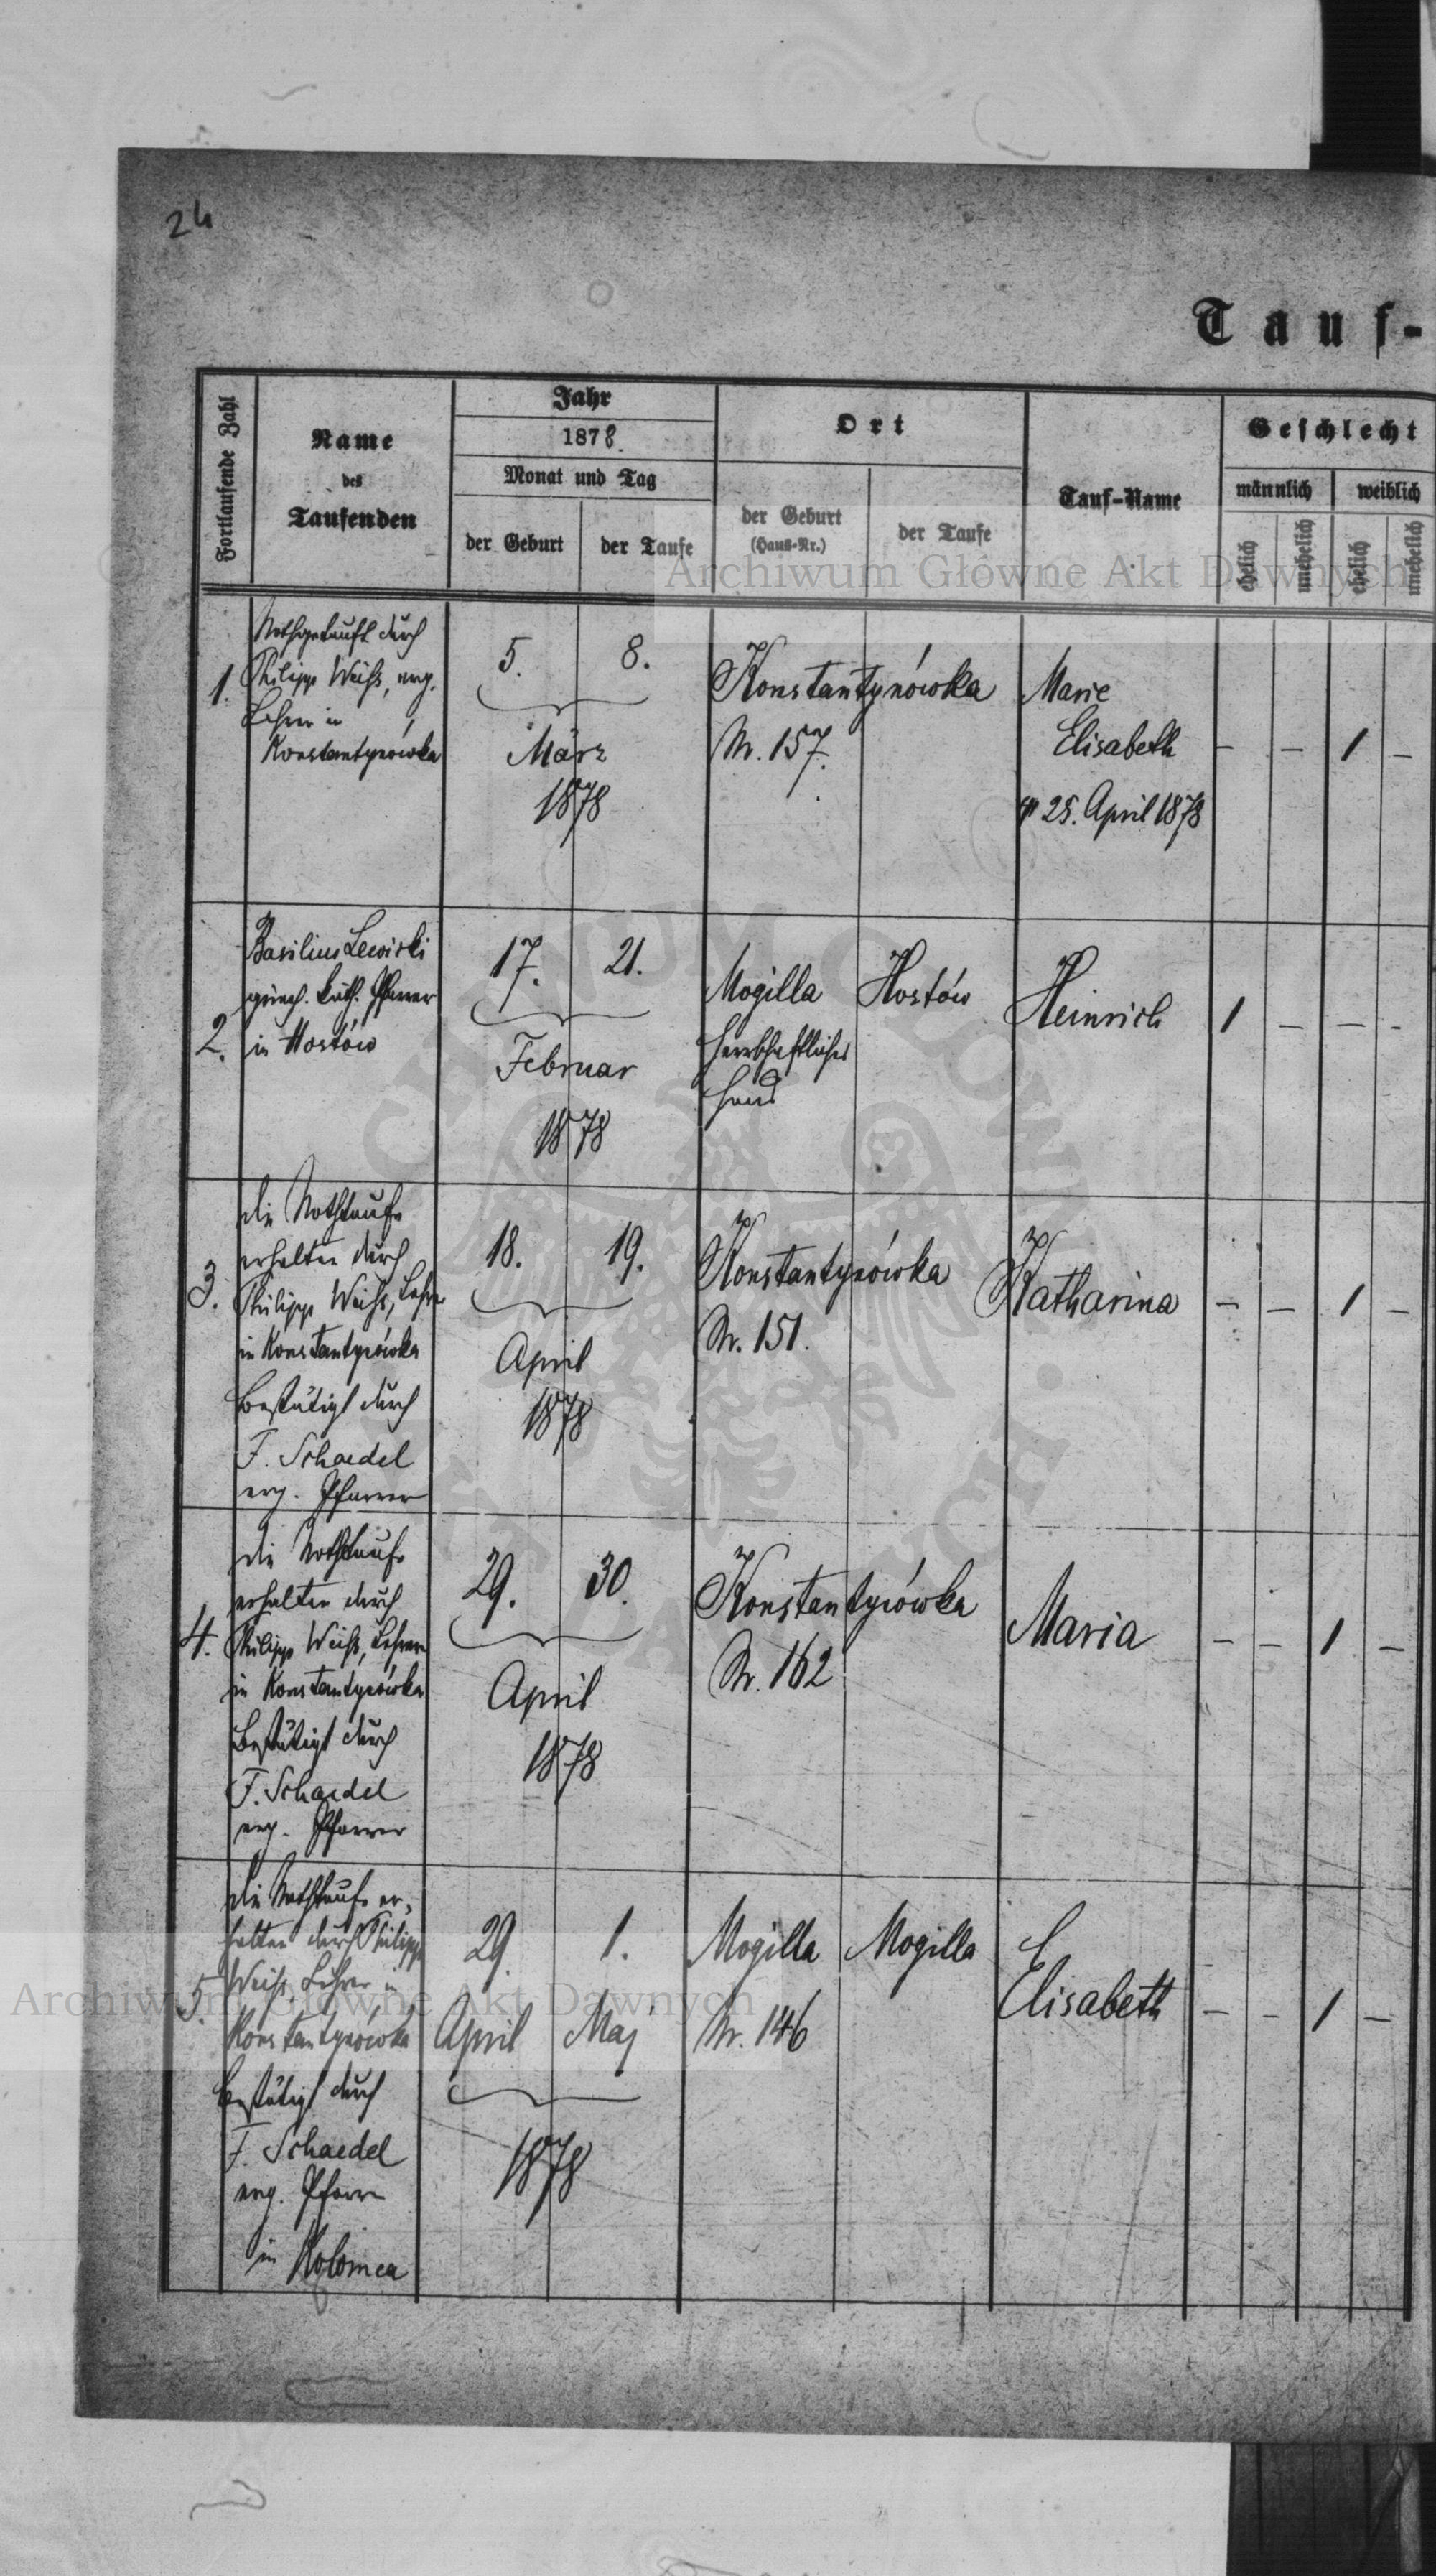 24
Tauf-
Fortlaufende Zahl
Name
des
Taufenden
Jahr
1878.
Monat und Tag
der Geburt
der Taufe
Ort
der Geburt
(Haus-Nr.)
der Taufe
Tauf-Name
Geschlecht
männlich
weiblich
ehelich
unehelich
ehelich
unehelich
Archiwum Główne Akt Dawnych
1.
Nothgetauft durch
Philipp Weiß, evg.
Lehrer in
Konstantynówka
5.
8.
März
1878
Konstantynówka
Nr. 157.
Marie
Elisabeth
25. April 1878
– – 1 –
2.
Basilius Lewicki
griech. kath. Pfarrer
in Hostów
17.
21.
Februar
1878
Mogilla
herrschaftliches
Haus
Hostów
Heinrich
1 – – –
3.
die Nothtaufe
erhalten durch
Philipp Weiß, Lehrer
in Konstantynówka
Bestätigt durch
F. Schaedel
evg. Pfarrer
18.
19.
April
1878
Konstantynówka
Nr. 151.
Katharina
– – 1 –
4.
die Nothtaufe
erhalten durch
Philipp Weiß, Lehrer
in Konstantynówka
Bestätigt durch
F. Schaedel
evg. Pfarrer
29.
30.
April
1878
Konstantynówka
Nr. 162
Maria
– – 1 –
5.
die Nothtaufe er-
halten durch Philipp
Weiß, Lehrer in
Konstantynówka
Bestätigt durch
F. Schaedel
evg. Pfarrer
in Kolomea
29.
1.
April
Maj
1878
Mogilla
Nr. 146
Mogilla
Elisabeth
– – 1 –
Archiwum Główne Akt Dawnych